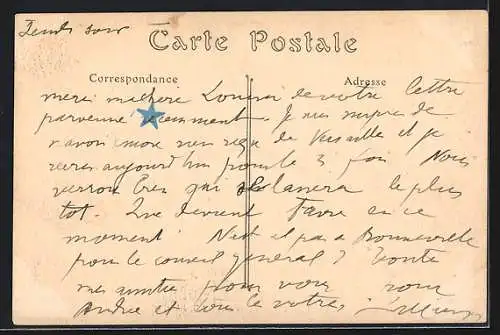 Jeudi soir
Carte Postale
Correspondance
Adresse
merci ma chère Louise de votre lettre
parvenue récemment. Je suis surpris de
n'avoir encore rien reçu de Versaille et je
écris aujourd'hui pour la 3 fois Nous
verrons bien qui se lassera le plus
tot. Que devient Favre en ce
moment. N'est il pas a Bonneville
pour le conseil général ? Toute
mes amitiés pour vous pour
Andrée et tous le votres